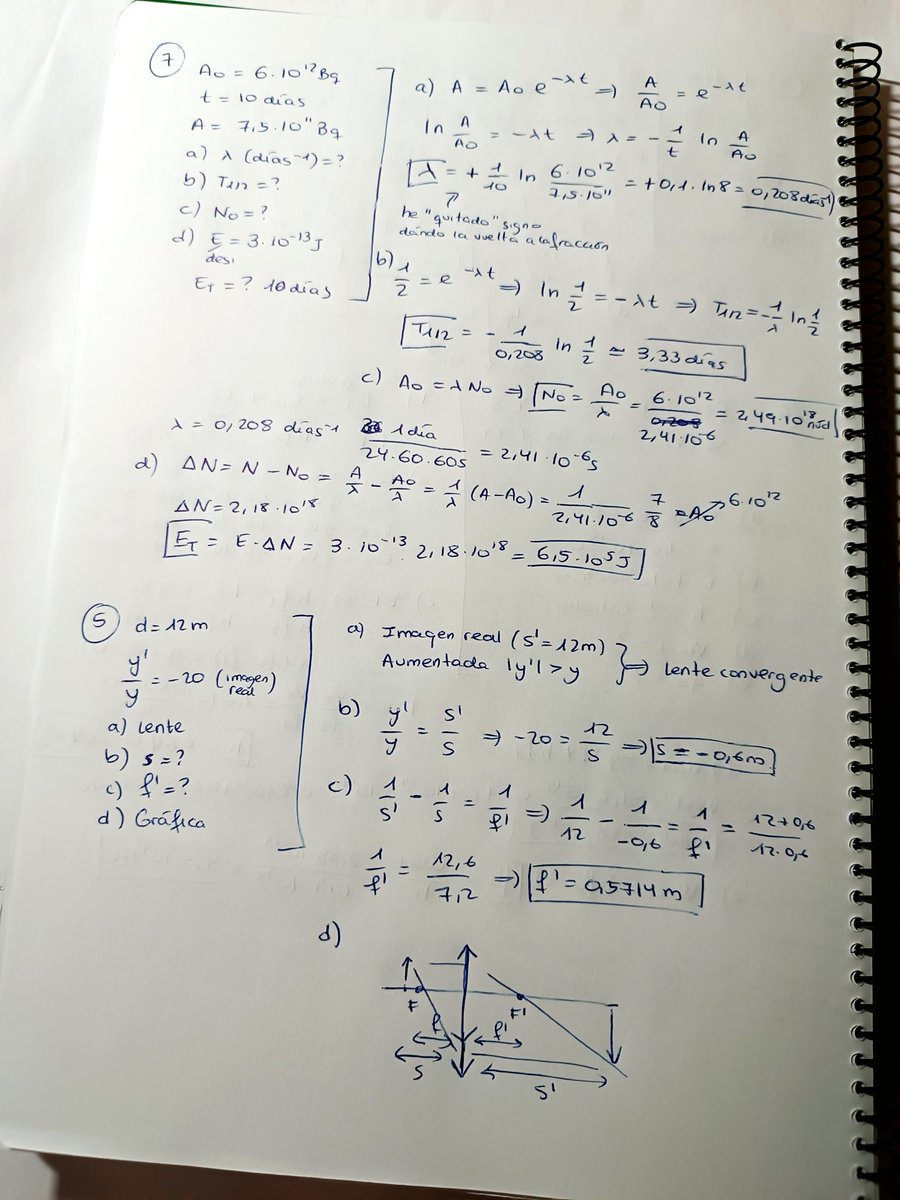 7
A₀ = 6·10¹² Bq
t = 10 días
A = 7,5·10¹¹ Bq
a) λ (días⁻¹) = ?
b) T1/2 = ?
c) N₀ = ?
d) E = 3·10⁻¹³ J
des.
E_T = ? 10 días
a) A = A₀ e^(-λt) ⇒ A/A₀ = e^(-λt)
ln A/A₀ = -λt ⇒ λ = - 1/t ln A/A₀
λ = + 1/10 ln 6·10¹²/7,5·10¹¹ = +0,1·ln 8 = 0,208 días⁻¹
he "quitado" signo
dando la vuelta a la fracción
b) 1/2 = e^(-λt) ⇒ ln 1/2 = -λt ⇒ T1/2 = - 1/λ ln 1/2
T1/2 = - 1/0,208 ln 1/2 ≃ 3,33 días
c) A₀ = λ N₀ ⇒ N₀ = A₀/λ = 6·10¹²/2,41·10⁻⁶ = 2,49·10¹⁸ núcl
λ = 0,208 días⁻¹ 1 día/24·60·60s = 2,41·10⁻⁶ s
d) ΔN = N - N₀ = A/λ - A₀/λ = 1/λ (A - A₀) = 1/2,41·10⁻⁶ 7/8 A₀ 6·10¹²
ΔN = 2,18·10¹⁸
E_T = E·ΔN = 3·10⁻¹³ · 2,18·10¹⁸ = 6,5·10⁵ J
5
d = 12 m
y'/y = -20 (imagen real)
a) lente
b) s = ?
c) f' = ?
d) Gráfica
a) Imagen real (s' = 12m)
Aumentada |y'| > y ⇒ lente convergente
b) y'/y = s'/s ⇒ -20 = 12/s ⇒ s = -0,6m
c) 1/s' - 1/s = 1/f' ⇒ 1/12 - 1/-0,6 = 1/f' = 12+0,6/12·0,6
1/f' = 12,6/7,2 ⇒ f' = 0,5714 m
d)
F
F'
f
f'
s
s'